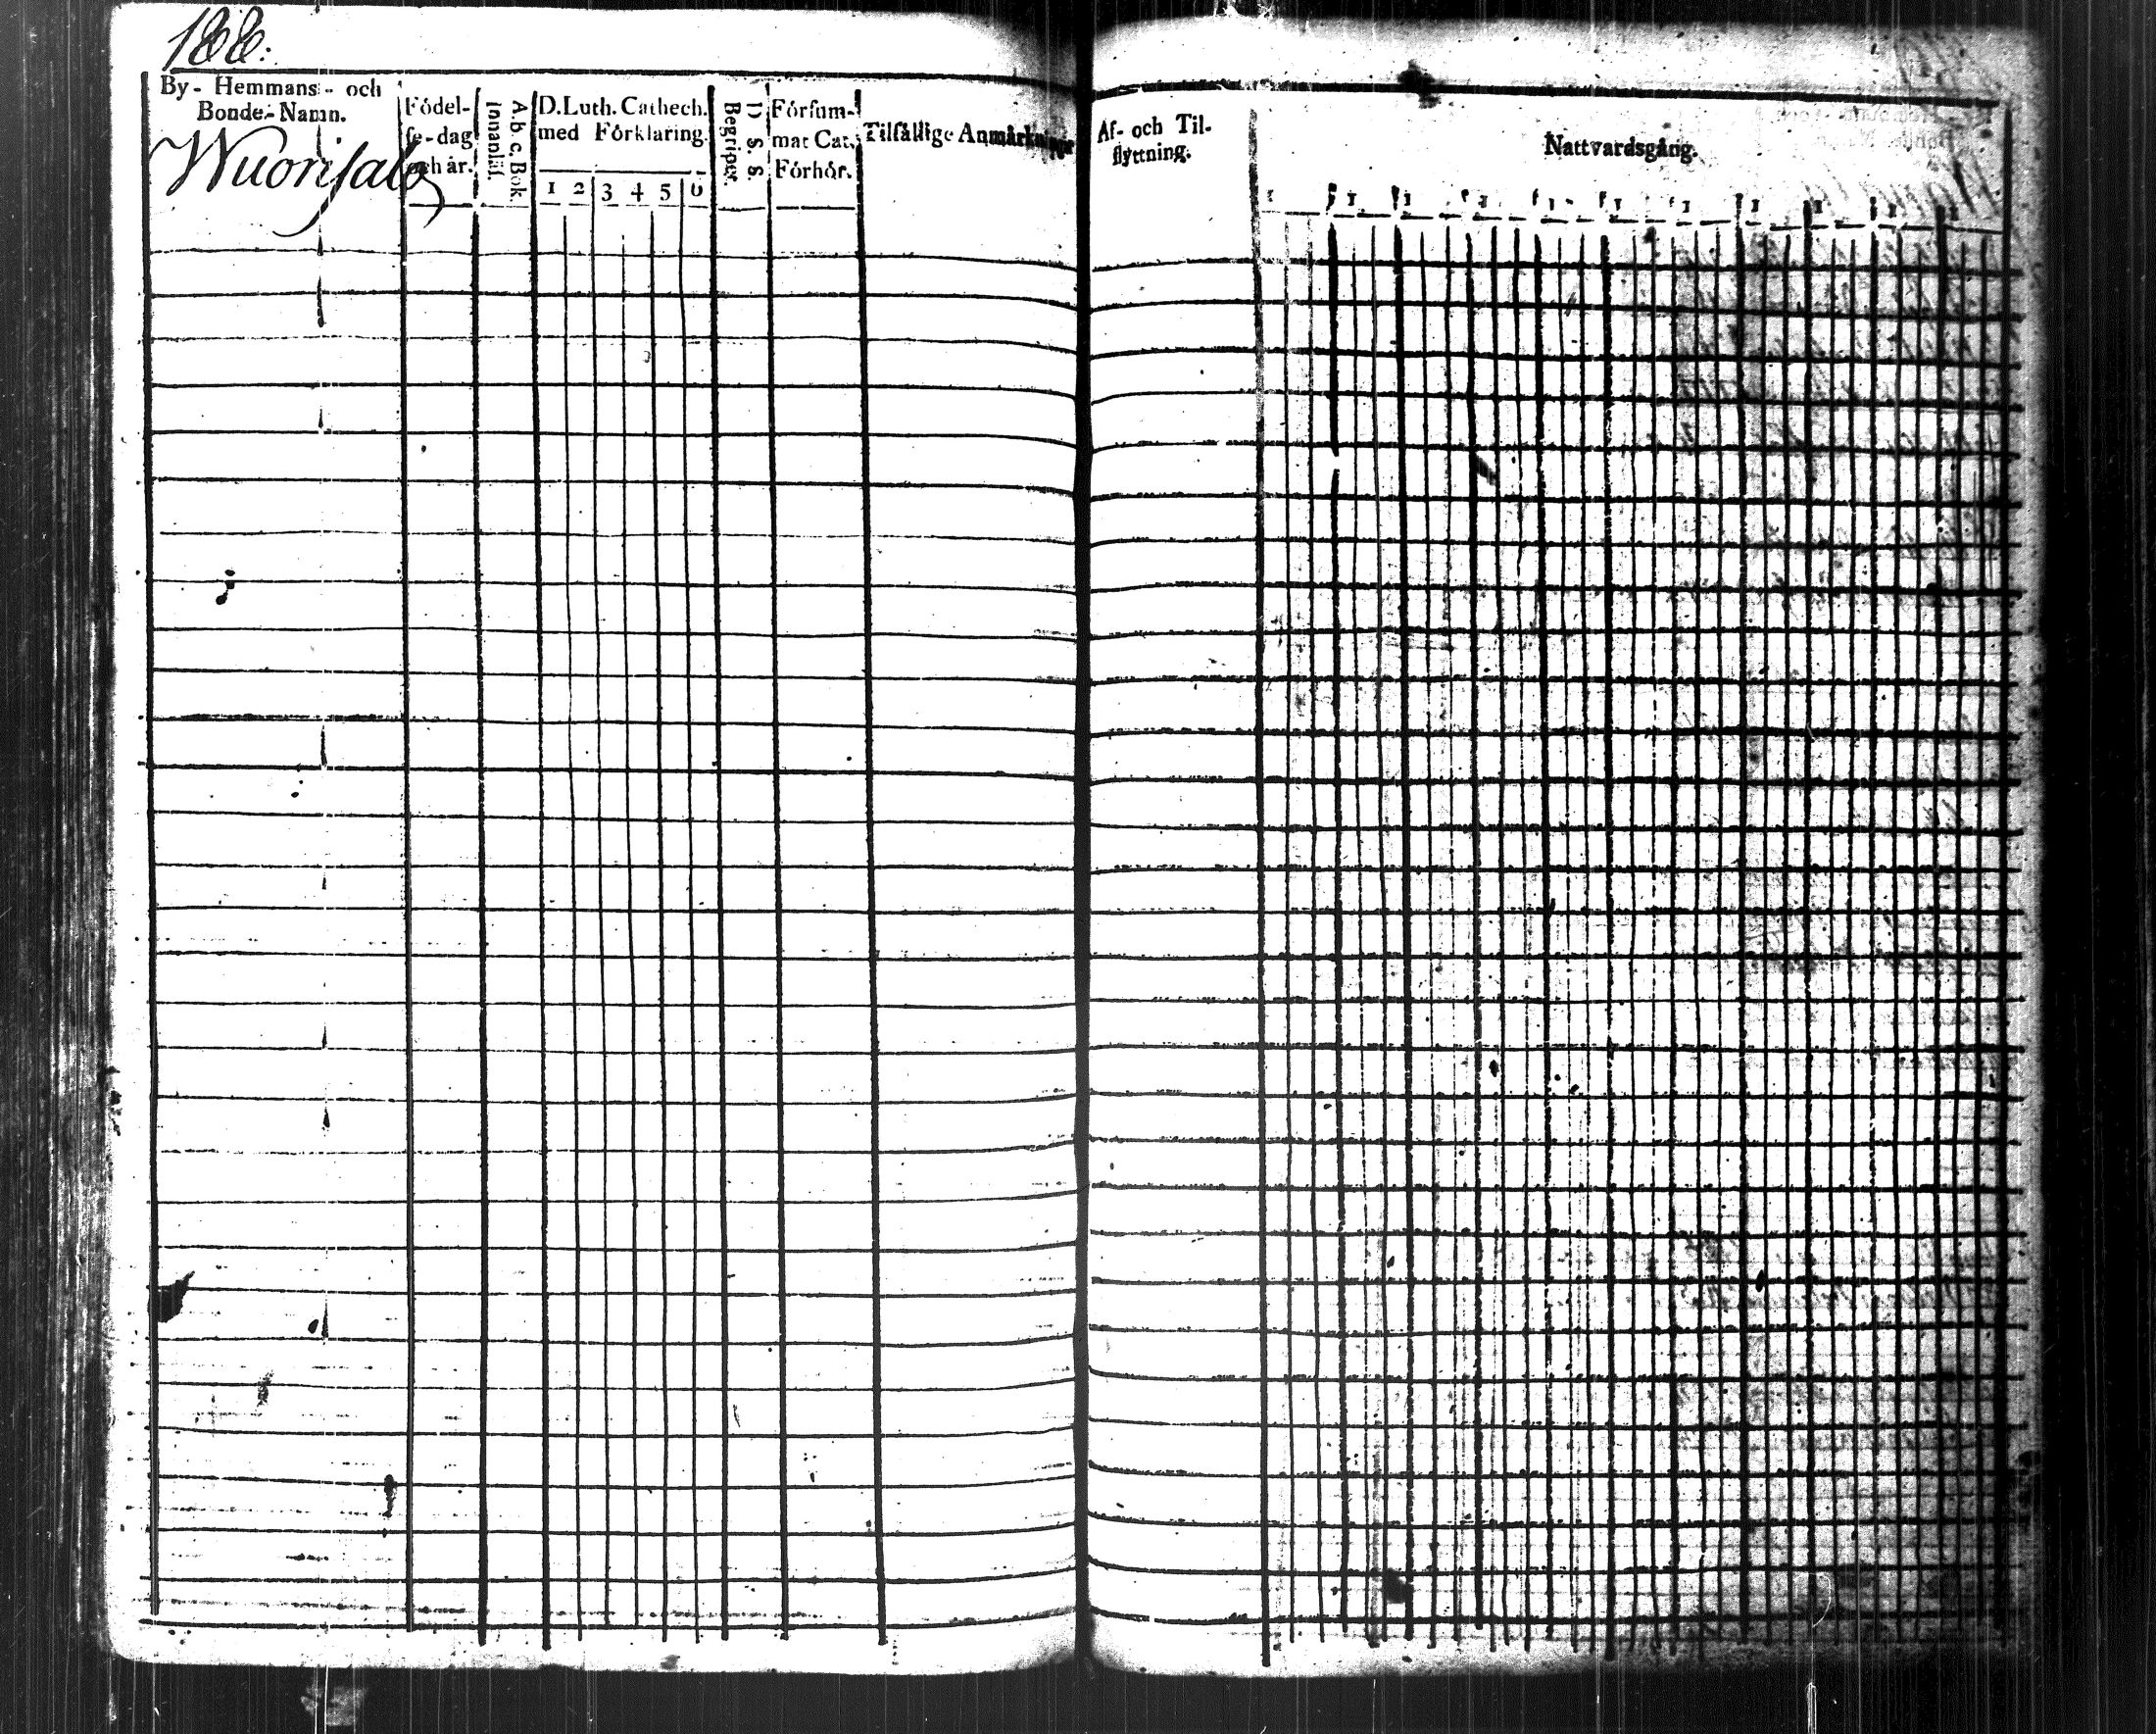 188.
By- Hemmans- och
Bonde-Namn.
Wuorisalo
Födel-
se-dag
och år.
A. b. c. Bok.
Innanläsf.
D. Luth. Cathech.
med Förklaring.
1 2 3 4 5 6
D. S. S.
Begriper.
Försum-
mat Cat.
Förhör.
Tilfällige Anmärkningar
Af- och Til-
flyttning.
Nattvardsgång.